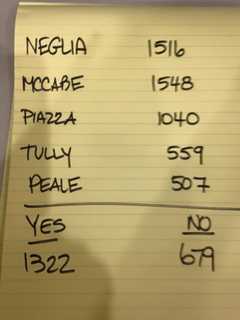 NEGLIA 1516
MCCABE 1548
PIAZZA 1040
TULLY 559
PEALE 507
YES NO
1322 679